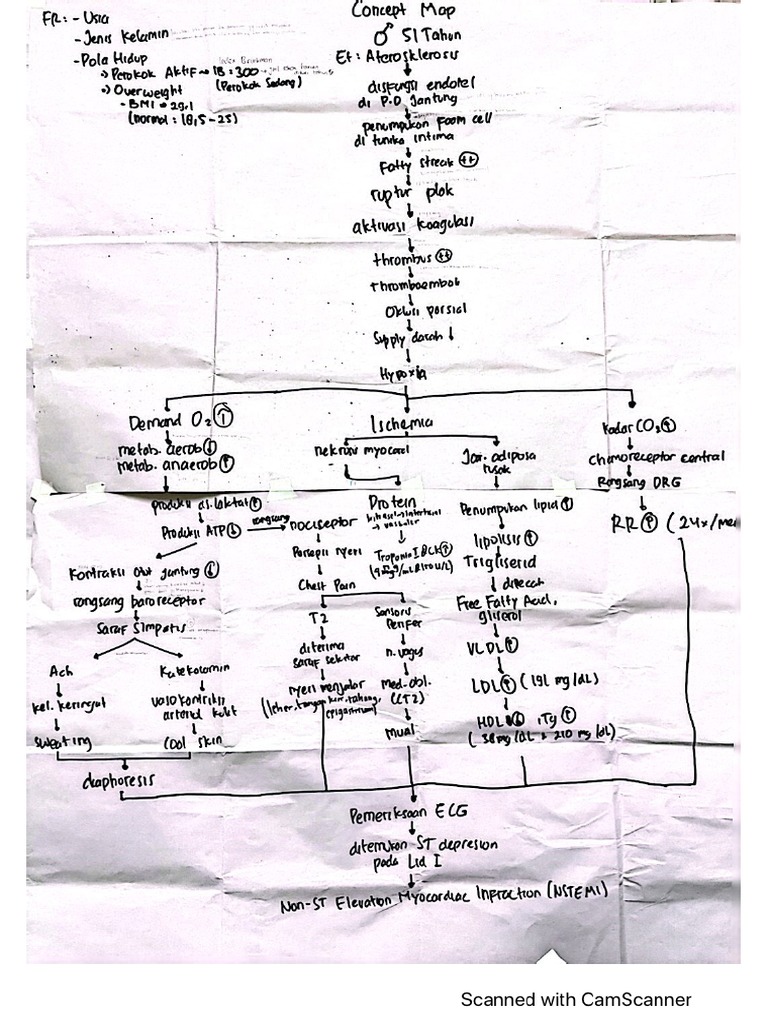 Concept Map
FR : - Usia
- Jenis Kelamin
- Pola Hidup
Perokok Aktif → IB : 300
(Perokok Sedang)
Overweight
- BMI = 29,1
(normal : 18,5 - 25)
♂ 51 Tahun
Et : Aterosklerosis
disfungsi endotel
di P.D Jantung
penumpukan foam cell
di tunika intima
Fatty streak (++)
ruptur plak
aktivasi koagulasi
thrombus (++)
Thromboemboli
Oklusi parsial
Supply darah ↓
Hypoxia
Demand O₂ (↑)
metab. aerob (↓)
metab. anaerob (↑)
produksi as. laktat (↑)
Produksi ATP (↓)
Kontraksi otot jantung (↓)
rangsang baroreceptor
Saraf Simpatis
Ach
kel. keringat
sweating
Katekolamin
vasokontriksi
arteriol kulit
Cool skin
diaphoresis
Ischemia
nekrosis myocard
rangsang
nociseptor
Persepsi nyeri
Chest Pain
T2
diterima
saraf sekitar
nyeri menjalar
(leher, tangan kiri, tahang,
epigastrium)
Protein
Troponin I & CK (↑)
Sensoris
Perifer
n. vagus
med. obl.
(CTZ)
Mual
Jar. adiposa
rusak
Penumpukan lipid (↑)
lipolisis (↑)
Trigliserid
dipecah
Free Fatty Acid,
gliserol
VLDL (↑)
LDL (↑) (191 mg/dL)
HDL (↓) , Tg (↑)
(38 mg/dL & 210 mg/dL)
Kadar CO₂ (↑)
chemoreceptor central
Rangsang DRG
RR (↑) (24x/me
Pemeriksaan ECG
ditemukan ST depresion
pada Lid I
Non-ST Elevation Myocardiac Infraction (NSTEMI)
Scanned with CamScanner